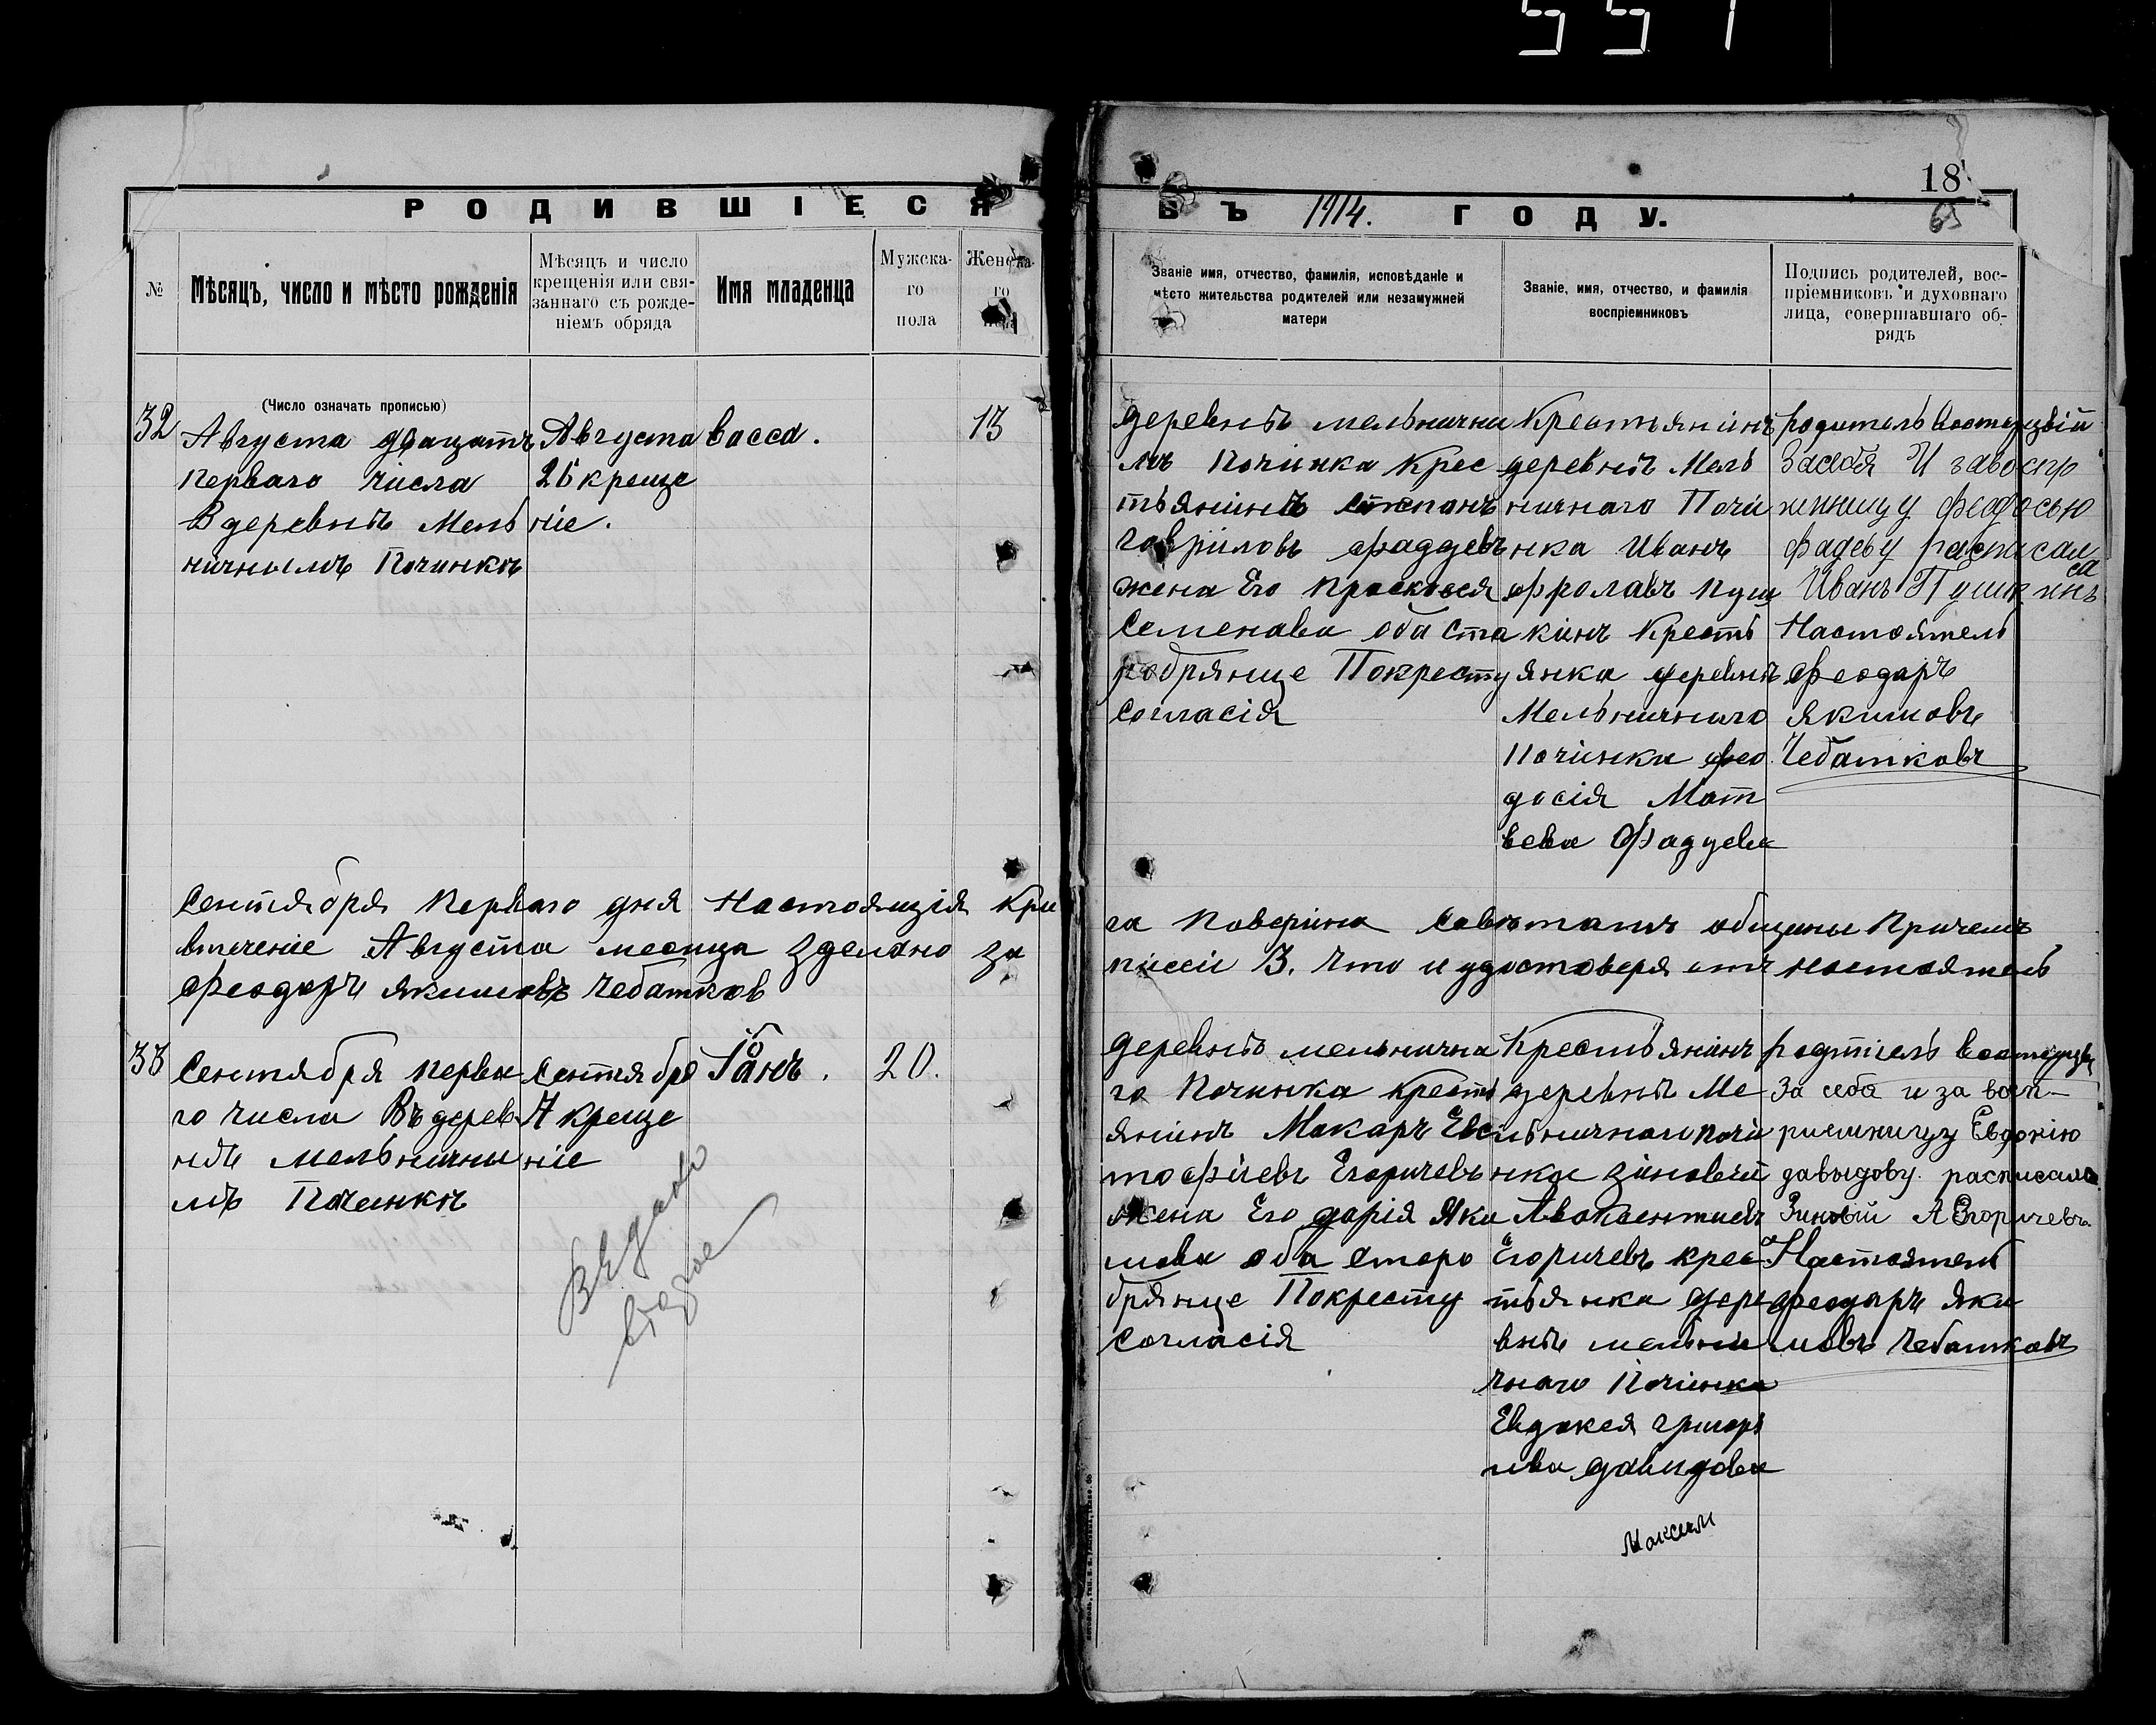 551
18
65
РОДИВШІЕСЯ
ВЪ 1914. ГОДУ.
№
Мѣсяцъ, число и мѣсто рожденія
Мѣсяцъ и число
крещенія или свя-
заннаго съ рожде-
ніемъ обряда
Имя младенца
Мужска-
го
пола
Женска-
го
пола
Званіе имя, отчество, фамилія, исповѣданіе и
мѣсто жительства родителей или незамужней
матери
Званіе, имя, отчество, и фамилія
воспріемниковъ
Подпись родителей, вос-
пріемниковъ и духовнаго
лица, совершавшаго об-
рядъ
(Число означать прописью)
32
Августа двацать
перваго числа
В деревнѣ Мель
ничнымъ Починкѣ
Августа
26 креще
ніе.
васса.
13
деревнѣ мельнични
мъ Починка крес
тьянинъ Степанъ
гавриловъ фаддевъ
жена Его Просковея
Семенава оба ста
робрянце Покресту
согласія
Крестьянинъ
деревнѣ Мель
ничнаго Почи
нка Иванъ
фролавъ Пуш
кинъ Кресть
янка деревнѣ
Мельничнаго
Починка фео
досія Мат
вева Фаддева
родитель
засебя И завоспр
иемницу федосью
фадеву расписал
са
Иванъ Пушкинъ
Настоятель
феодаръ
якимовъ
Чебатковъ
Сентября перваго дня Настоящія кни
га поверина Саветамъ общины Причемъ
втечение Августа месица зделано за
писеи 3. что и удостоверяетъ настоятель
феодаръ якимовъ чебатков
33
Сентября перва
го числа Въ дерев
нѣ мельнични
мъ Починкѣ
Сентября
7 креще
ніе
Іоанъ.
20.
Выдано
деревнѣ мельнична
го Починка кресть
янинъ Макаръ Евс
тофіевъ Егоричевъ
жена Его дарія Яки
мова оба старо
брянце Покресту
согласія
Крестьянинъ
деревнѣ Ме
льничнаго почи
нка зиновей
Авксентиевъ
Егоричевъ крес
тьянка дере
внѣ мельни
чнаго Починка
Евдокея григорь
ива давидова
Максим
За себя и за восп-
риемницу Евдокію
давыдову. расписался
Зиновій А Егоричевъ.
Настоятель
феодаръ яки
мовъ чебатковъ